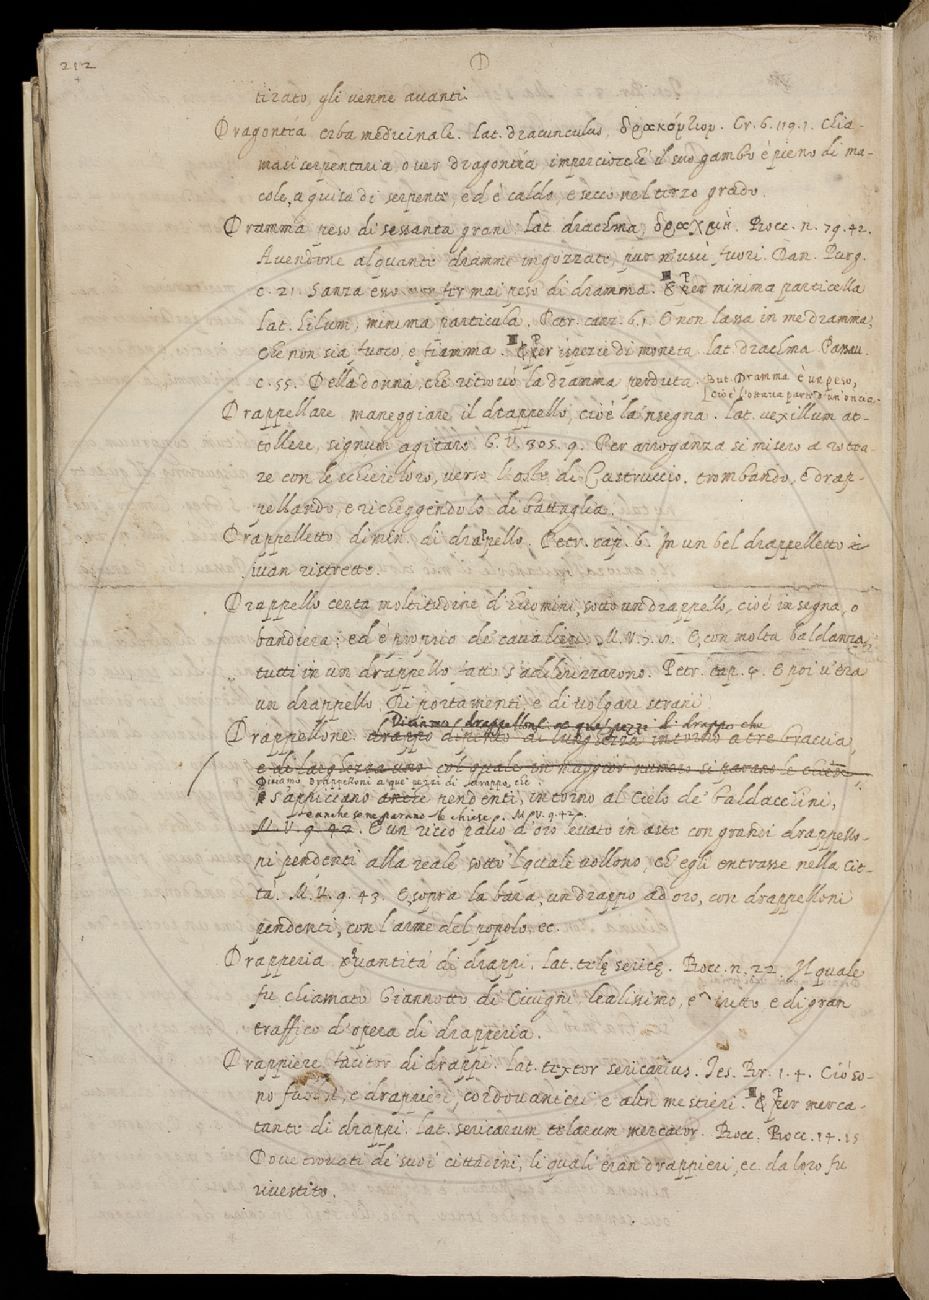 212
D
tirato, gli venne avanti.
Dragontéa erba medicinale. lat. dracunculus, δρακόντιον. Cr. 6. 119. 1. Chia-
masi serpentaria, o ver dragontéa imperciocché il suo gambo è pieno di ma-
cole, a guisa di serpente, ed è caldo, e secco nel terzo grado.
Dramma peso di sessanta grani. lat. drachma, δραχμὴ. Bocc. n. 79. 42.
Avendone alquante dramme ingozzate, pur n'uscì fuori. Dan. Purg.
c. 21. Sanza esso non fermai peso di dramma. Per minima particella
lat. hilum, minima particula. Petr. canz. 6. 1. E non lassa in me dramma,
che non sia fuoco, e fiamma. Per ispezie di moneta. lat. drachma Passau.
c. 55. Della donna, che ritrovò la dramma perduta. But. Dramma è un peso,
cioè l'ottava parte d'un'oncia.
Drappellare maneggiare il drappello, cioè la 'nsegna. lat. vexillum at-
tollere, signum agitare. G. V. 305. 9. Per arroganza si misero a rotta-
re con le schiere loro, verso l'oste di Castruccio, trombando, e drap-
pellando, e richeggendolo di battaglia.
Drappelletto dimin. di drappello. Petr. cap. 6. In un bel drappelletto
ivan ristrette.
Drappello certa moltitudine d'huomini, sotto un drappello, cioè insegna, o
bandiera: ed è proprio de' cavalieri. M. V. E, con molta baldanza,
tutti in un drappello s'addirizzarono. Petr. cap. 4. E poi v'era
un drappello, Di portamenti, e di volgari strani
Diciamo drappelloni a que' pezzi di drappo che
Drappellone. drappo dipinto di lunghezza intorno a tre braccia,
e di larghezza uno col quale in maggior numero si parano le chiese
Diciamo Drappelloni a que' pezzi di drappo, che
s'appiccano anche pendenti, intorno al cielo de' baldacchini,
e anche se ne parano le chiese. M. V. 9. 42.
M. V. 9. 42. E un ricco palio d'oro levato in aste con grandi drappello-
ni pendenti alla reale sotto 'l quale vollono, ch'egli entrasse nella cit-
tà. M. V. 9. 43. E sopra la bara, un drappo ad oro, con drappelloni
pendenti, con l'arme del popolo, ec.
Drapperia Quantità di drappi. lat. telę sericę. Bocc. n. 22. Il quale
fu chiamato Giannotto di Civignì lealissimo, e diritto, e di gran
traffico d'opera di drapperia.
Drappiere facitor di drappi. lat. textor sericarius. Tes. Br. 1. 4. Ciò so-
no e drappieri, cordovanieri e altri mestieri. Per merca-
tante di drappi. lat. sericarum telarum mercator. Bocc. 14. 15
Dove trovati de' suoi cittadini, li quali eran drappieri, ec. da loro fu
rivestito.